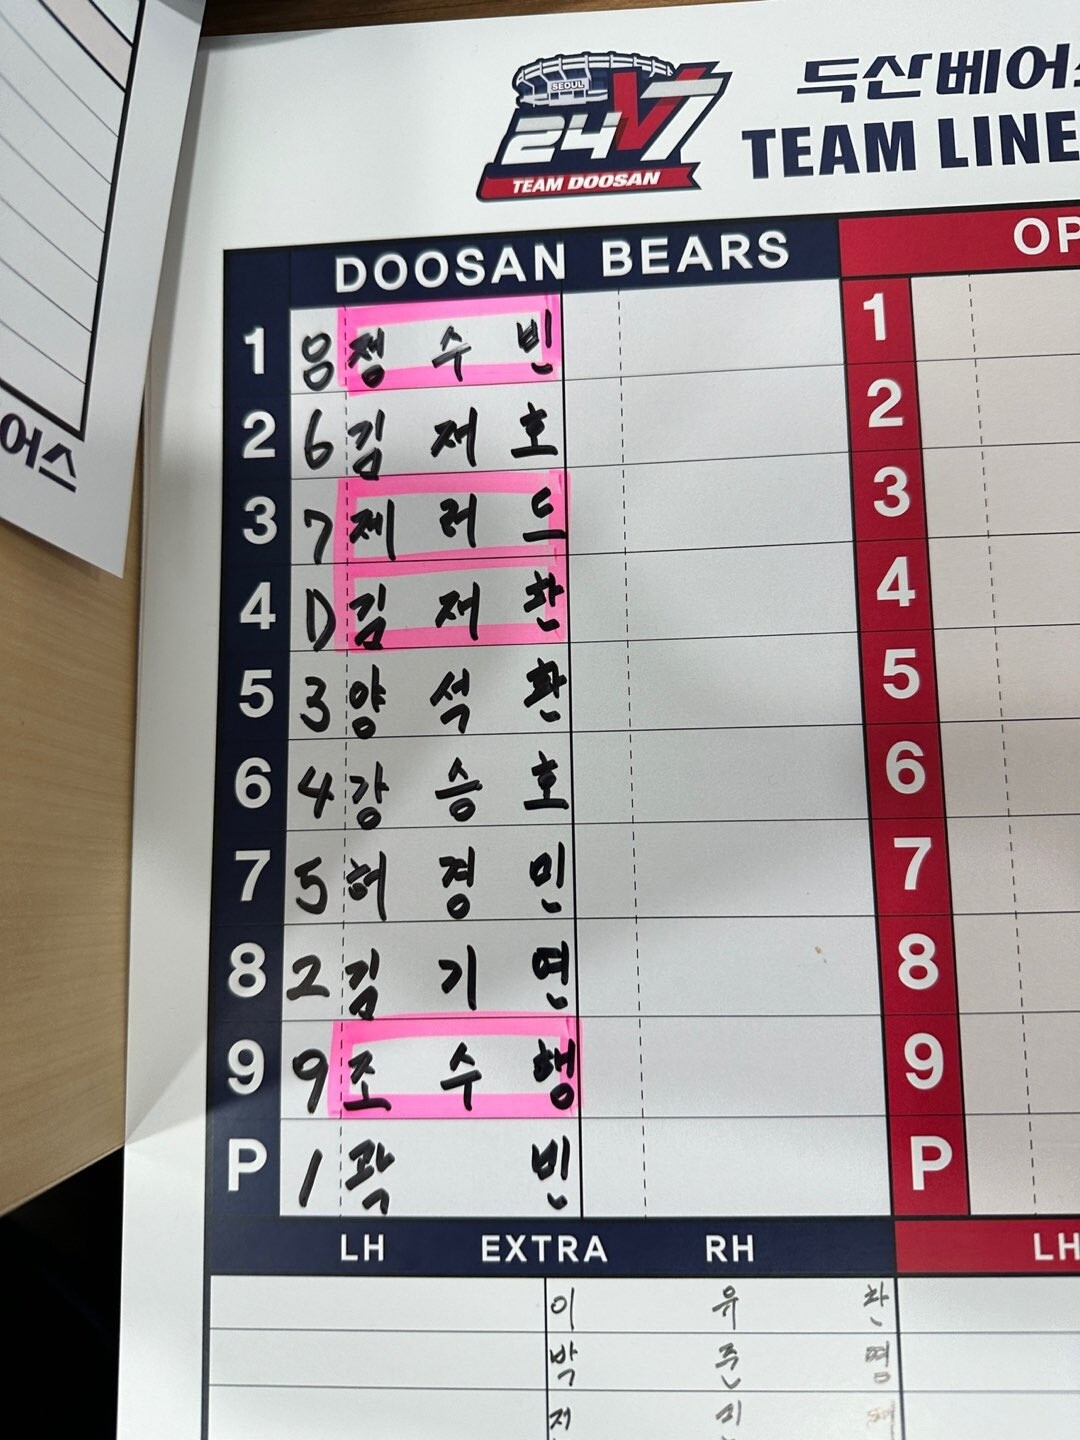 SEOUL
24 V7
TEAM DOOSAN
두산베어스
TEAM LINE
DOOSAN BEARS OP
1 8 정수빈 1
2 6 김재호 2
3 7 제러드 3
4 D 김재환 4
5 3 양석환 5
6 4 강승호 6
7 5 허경민 7
8 2 김기연 8
9 9 조수행 9
P 1 곽빈 P
LH EXTRA RH LH
이유찬
박준영
어스